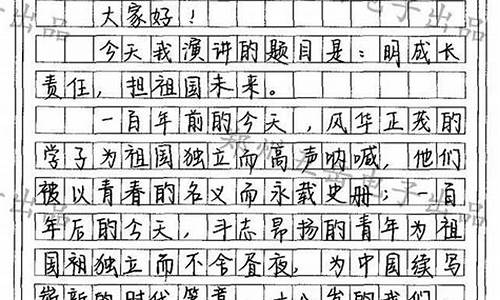 大家好！
今天我演讲的题目是：明成长
责任，担祖国未来。
一百年前的今天，风华正茂的
学子为祖国独立而高声呐喊，他们
被以青春的名义而永载史册；一百
年后的今天，斗志昂扬的青年为祖
国祖独立而不舍昼夜，为中国续写
崭新的时代篇章，